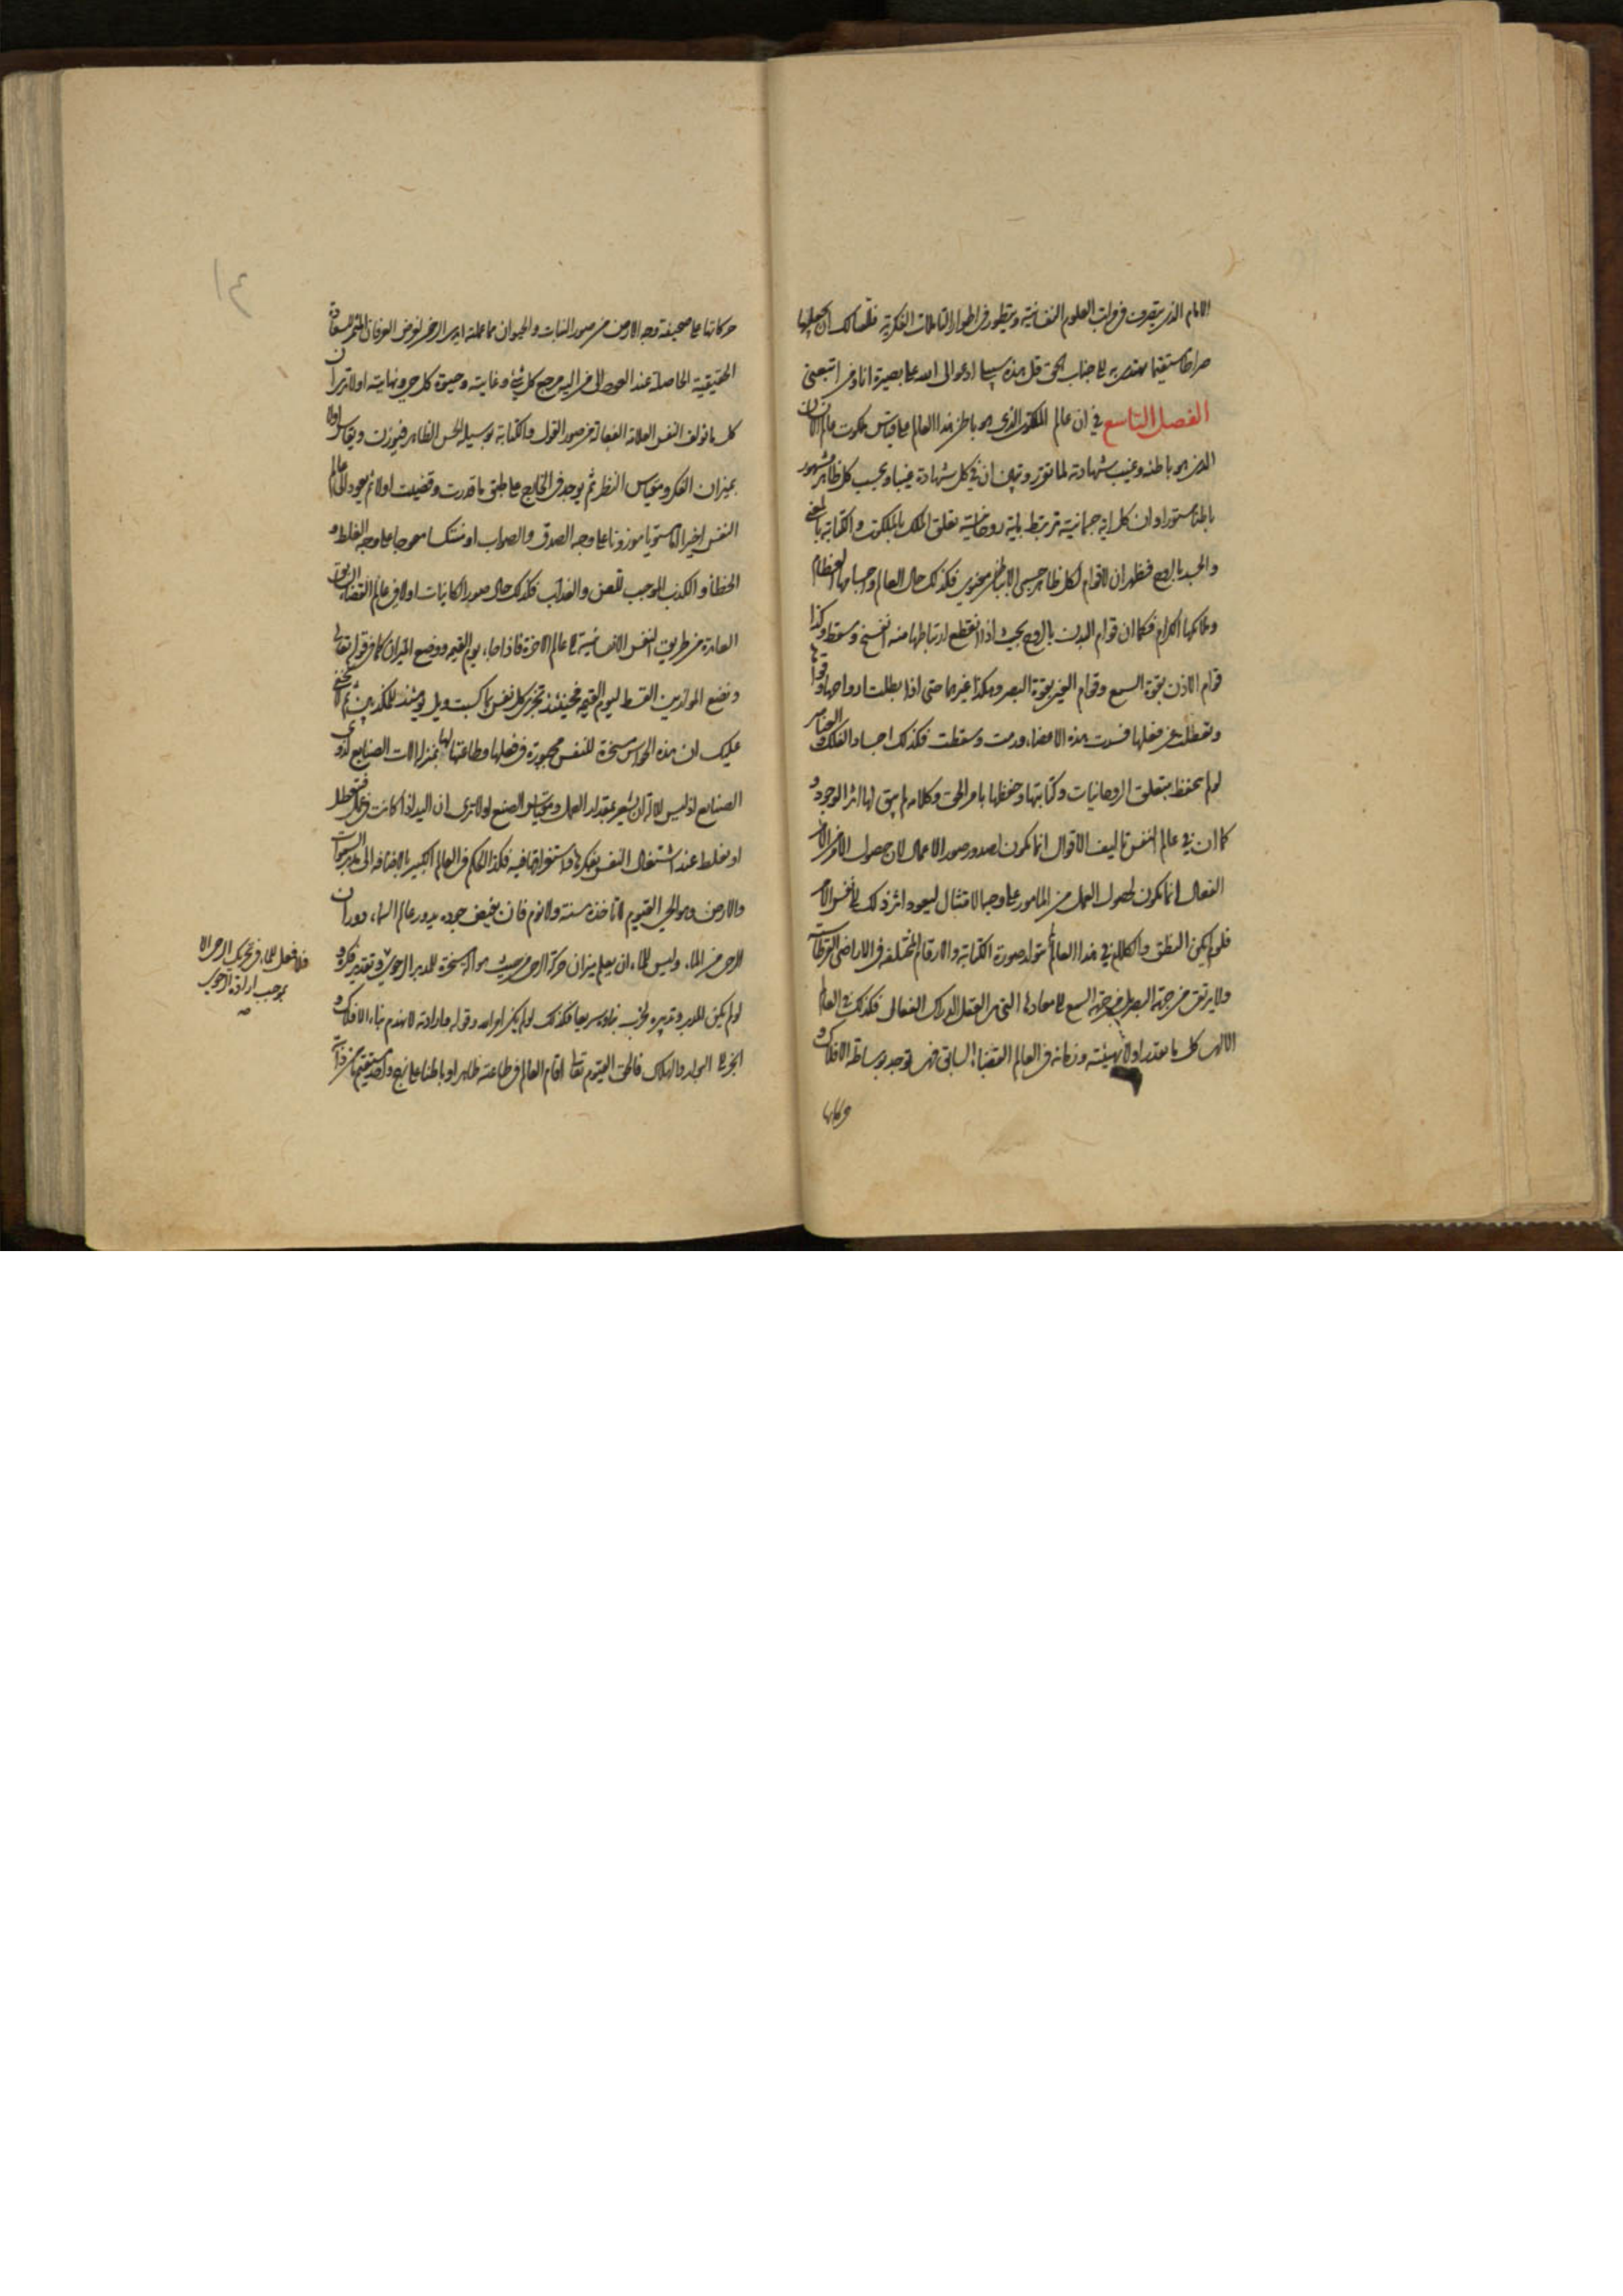 الامام الذي يتصرف في مراتب العلوم النفسانية ويتطور في اطوار التاملات الفكرية فلعلك ان تجعلها
صراطا مستقيما تهتدي به الى جناب الحق قل هذه سبيلي ادعوا الى الله على بصيرة انا ومن اتبعني
الفصل التاسع في ان عالم الملكوت الذي هو باطن هذا العالم على قياس ملكوت عالم الانسان
الذي هو باطنه وغيب شهادته لما تقرر وتبين ان في كل شهادة غيبا وبحسب كل ظاهر مشهور
باطنا مستورا وان كل اية جسمانية ترتبط باية روحانية تعلق الملك بالملكوت والكتابة بالمعنى
والجسد بالروح فظهر ان لا قوام لكل ظاهر حسي الا بباطن معنوي فكذلك حال العالم واجسامها العظام
وحاكمها الكرام فكما ان قوام البدن بالروح بحيث اذا انقطع ارتباطها منه انفسخ وسقط وكذا
قوام الاذن بقوة السمع وقوام العين بقوة البصر وهكذا غيرها حتى اذا بطلت ارواحها وقواها
وتعطلت عن فعلها فسدت هذه الاعضاء ورمت وسقطت فكذلك اجساد الفلك والعناصر
لو لم يحفظ بتعلق الروحانيات وكتابتها وحفظها بامر الحق وكلامه لم يبق لها اثر الوجود و
كما ان في عالم النفس تاليف الاقوال انما يكون لصدور صور الاعمال لان حصول الامر من الامر
الفعال انما يكون لحصول العمل من المامور على وجه الامتثال ليعود اثر ذلك الى نفس الامر
فلو لم يكن النطق والكلام في هذا العالم لم يتولد صورة الكتابة والارقام المختلفة في الاراضي القرطاسية
ولا يرتقي من جهة البصر او من جهة السمع الى معادها التي هي العقل الدراك الفعال فكذلك في العالم
الالهي كل ما يتقدر اولا بهيئته وزمانه في العالم القضاء السابق فهي توجد بوساطة الافلاك و
حركاتها
حركاتها على صحيفة وجه الارض من صور النبات والحيوان مما عملته ايدي الارض لغرض العرفان المثمر للسعادة
الحقيقية الحاصلة عند العود الى من اليه مرجع كل شيء وغايته وحيوة كل حي ونهايته اولا ترى ان
كل ما تولف النفس العلامة الفعالة من صور القول والكتابة بوسيلة الحس الظاهر فيوزن ويقاس اولا
بميزان الفكر ومقياس النظر ثم يوجد في الخارج على طبق ما قدرت وقضيت اولا ثم يعود الى عالم
النفس اخيرا اما مستويا موزونا على وجه الصدق والصواب او منتكسا معوجا على وجه الغلط و
الخطأ والكذب الموجب للعن والعذاب فكذلك حال صور الكائنات اولا في عالم القضاء السابق
العائدة من طريق النفس الانسانية الى عالم الاخرة فاذا جاء يوم القيمة ووضع الميزان كما في قوله تعالى
ونضع الموازين القسط ليوم القيمة فحينئذ تجزى كل نفس بما كسبت ويل يومئذ للمكذبين ثم لا يخفى
عليك ان هذه الحواس مسخرة للنفس مجبورة في فعلها وطاعتها لها بمنزلة الات الصنايع لذوي
الصنايع اذ ليس للالة ان يشعر بمقدار العمل ومقياس الصنع اولا ترى ان اليد اذا كانت في عمل فتعطل
او يغلط عند اشتغال النفس بفكرها واستغراقها فيه فكذا الحكم في العالم الكبير بالاضافة الى مدبر السموات
والارض وهو الحي القيوم لا تاخذه سنة ولا نوم فان بفيض جوده يدور عالم السماء دوران
الرحى من الماء وليس للماء ان يعلم ميزان حركة الرحى من حيث هو الة مسخرة للمدبر الرحوي وتقدير فكره و
لو لم يكن للمدبر وتدبيره لخرب بناؤه سريعا فكذلك لو لم يكن امر الله وقوله وارادته لانهدم بناء الافلاك و
انجر الى البوار والهلاك فالحي القيوم تعالى اقام العالم في طاعته ظاهرا وباطنا على نهج واحد مستقيم كما في ذاته
فلا فعل للماء في تحريك الرحى الا
بموجب ارادة الرحوي
صه
١٤